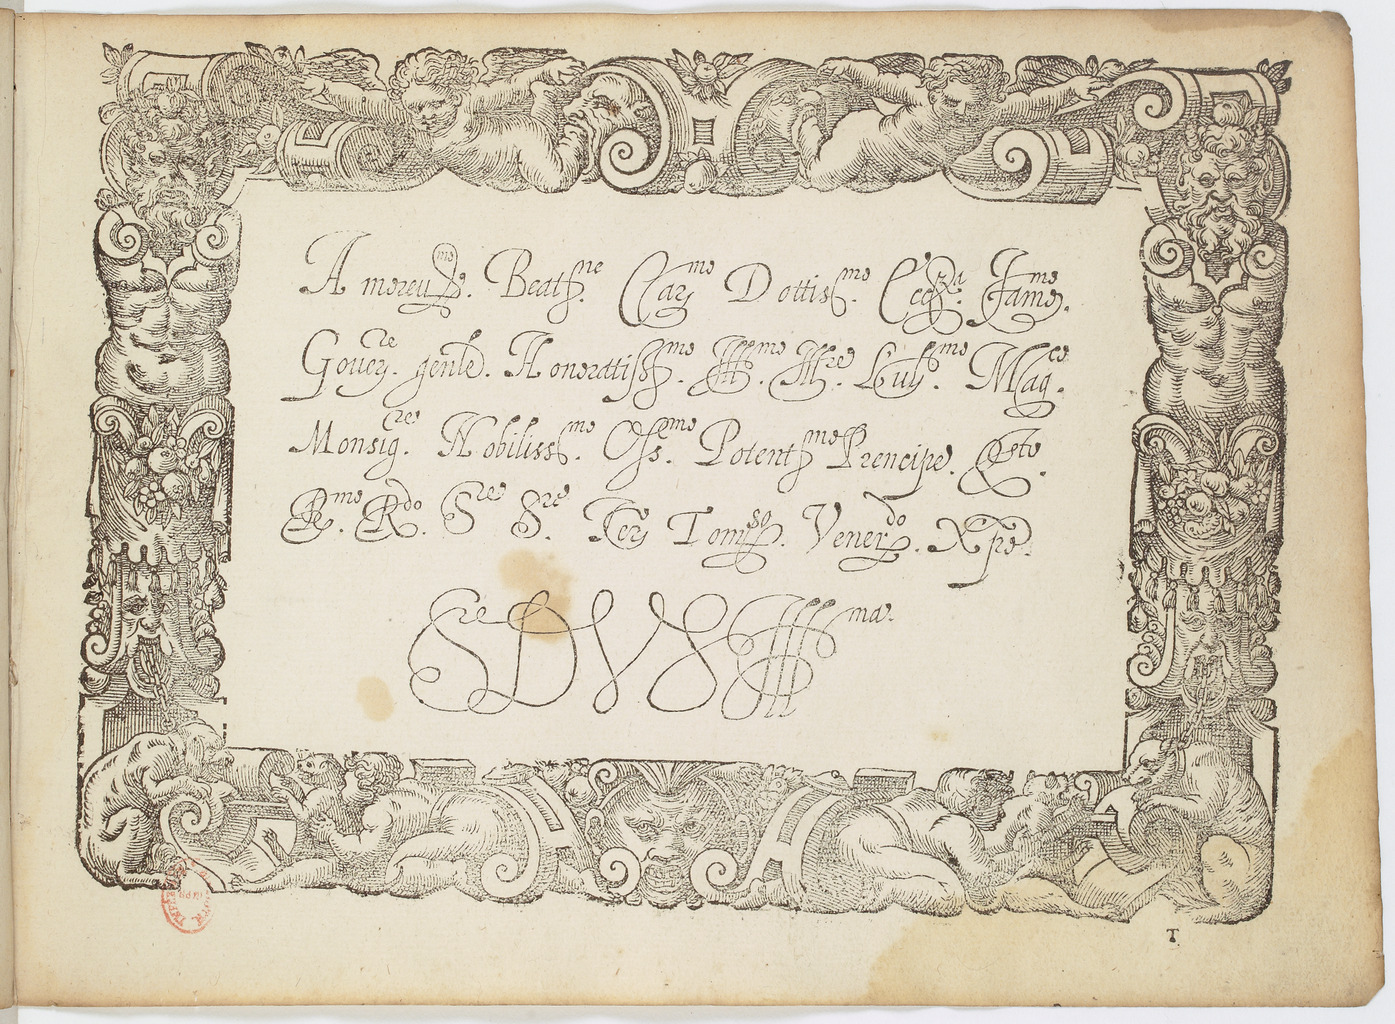 Amoreu^me. Beat^ne Car^mo Dottis^mo. Ecc^za. Fam^mo.
Gover^re. gentle. Honoratiss^mo. Ill^mo. Ill^re. Luls^mo Mag^ce.
Monsig^re. Nobiliss^mo. Oss^mo. Potent^mo Prencipe. Q^to.
R^mo. R^do. S^re S^re. Ter Tom^so. Vener^do. Xpo.
S^re D V S Ill^ma.
T